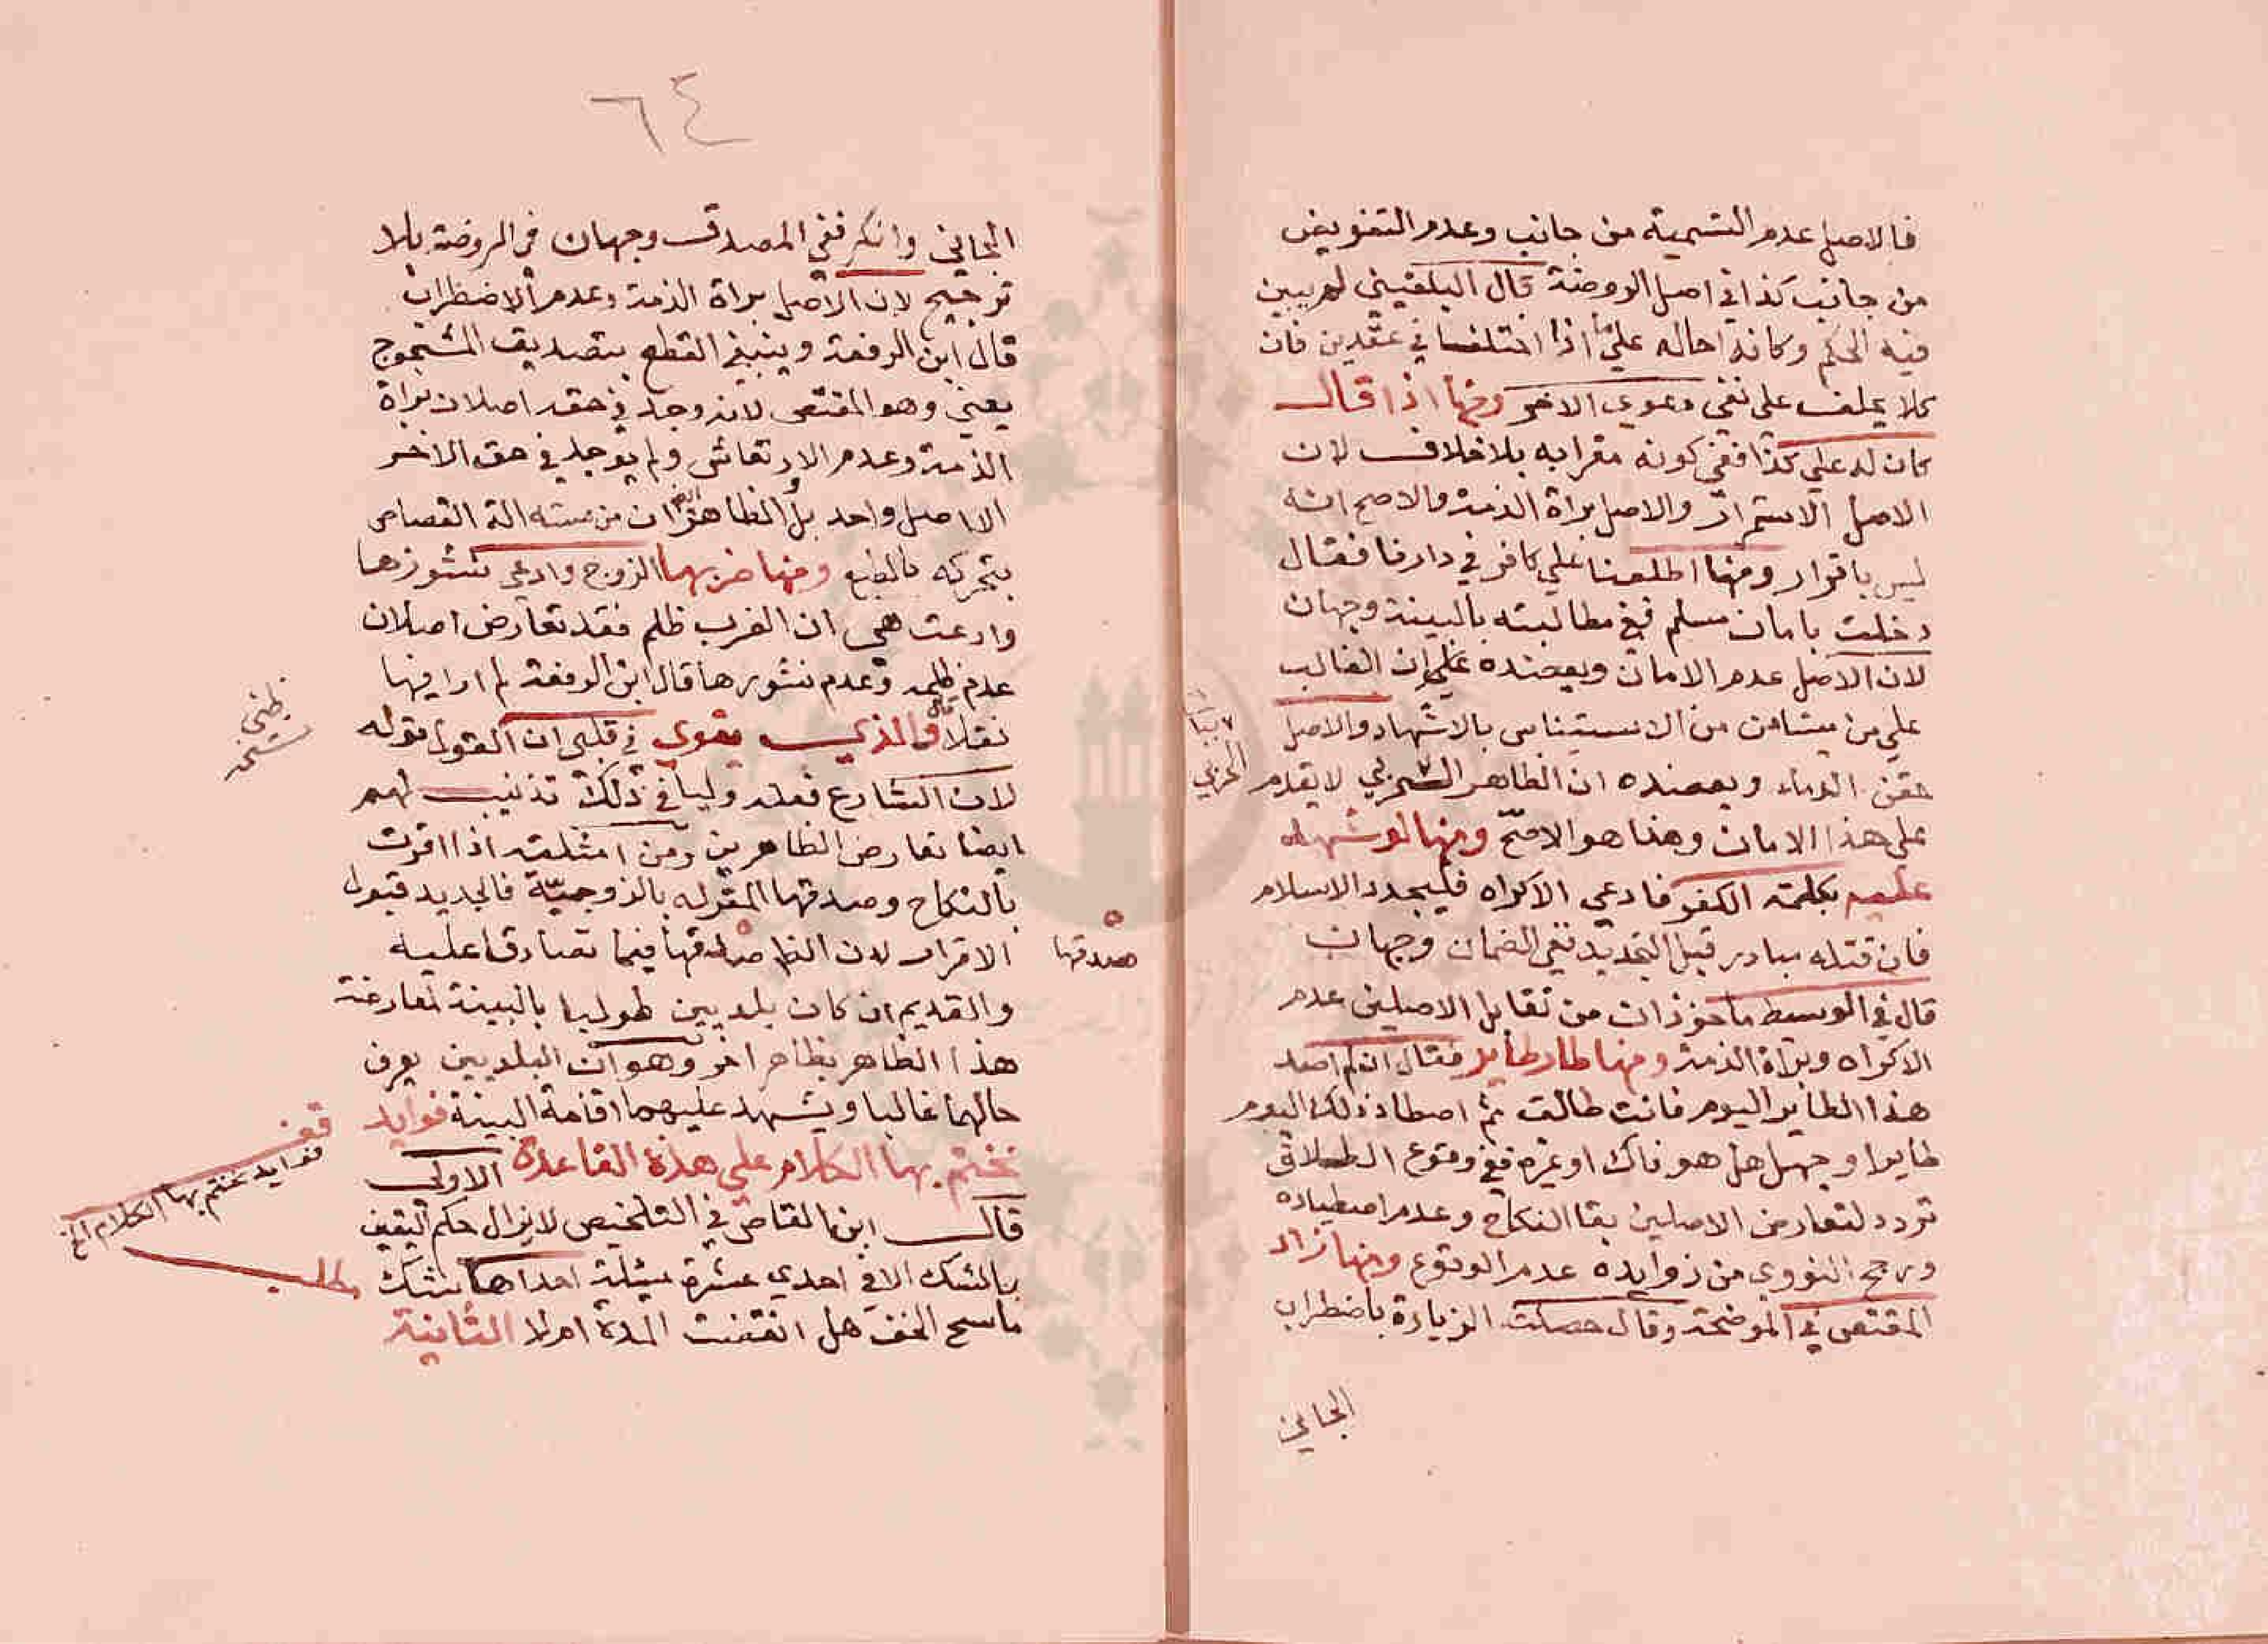 فالاصل عدم التسمية من جانب وعدم التفويض
من جانب كذا في اصل الروضة قال البلقيني لم يبين
فيه الحكم وكانه احاله علي ما اذا اختلفا في عقدين فان
كلا يحلف على نفي دعوي الاخر ومنها اذا قال
كان له علي كذا ففي كونه مقرا به بلا خلاف لان
الاصل الاستمرار والاصل براة الذمة والاصح انه
ليس باقرار ومنها اطلعنا علي كافر في دارنا فقال
دخلت بامان مسلم ففي مطالبته بالبينة وجهان
لان الاصل عدم الامان ويعضده علي ان الغالب
علي من يستامن من الاستيناس بالاشهاد والاصل
حقن الدماء ويعضده ان الظاهر الحربي لا يقدم
الحربي
على هذا الامان وهذا هو الاصح ومنها لو شهد
عليه بكلمة الكفر فادعي الاكراه فليجدد الاسلام
فان قتله مبادر قبل التجديد ففي الضمان وجهان
قال في الوسيط ماخوذان من تقابل الاصلين عدم
الاكراه وبراة الذمة ومنها طار طاير فقال ان لم اصد
هذا الطاير اليوم فانت طالق ثم اصطاد ذلك اليوم
طايرا وجهل هل هو ذاك او غيره ففي وقوع الطلاق
تردد لتعارض الاصلين بقا النكاح وعدم اصطياده
ورجح النووي من زوايده عدم الوقوع ومنها زاد
المقتص في الموضحة وقال حصلت الزيادة باضطراب
الجاني
٦٤
الجاني وانكر ففي المصدق وجهان في الروضة بلا
ترجيح لان الاصل براة الذمة وعدم الاضطراب
قال ابن الرفعة وينبغي القطع بتصديق المشجوج
يعني وهو المقتص لانه وجد في حقه اصلان براة
الذمة وعدم الارتعاش ولم يوجد في حق الاخر
الا اصل واحد بل والظاهر ايضا ان من مسته الة القصاص
يتحركه بالطبع ومنها ضربها الزوج وادعي نشوزها
وادعت هي ان الضرب ظلم فقد تعارض اصلان
عدم ظلمه وعدم نشوزها قال ابن الرفعة لم ار فيها
نقلا قال والذي يقوي في قلبي ان القول قوله
ظني
نسخه
لان الشارع جعله وليا في ذلك تذنيب لهم
ايضا تعارض الظاهرين ومن امثلته اذا اقرت
بالنكاح وصدقها المقر له بالزوجية فالجديد قبول
الاقرار لان الظاهر صدقها فيما تصادقا عليه
صدقها
والقديم ان كان بلديين طولبا بالبينة لمعارضة
هذا الظاهر بظاهر اخر وهو ان البلديين يعرف
حالهما غالبا ويشهد عليهما اقامة البينة فوايد
نختم بها الكلام علي هذه القاعدة الاولي
قف
فوايد نختم بها الكلام الخ
مطلب
قال ابن القاص في التلخيص لا يزال حكم اليقين
بالشك الا في احدي عشرة مسئلة احداها شك
ماسح الخف هل انقضت المدة ام لا الثانية